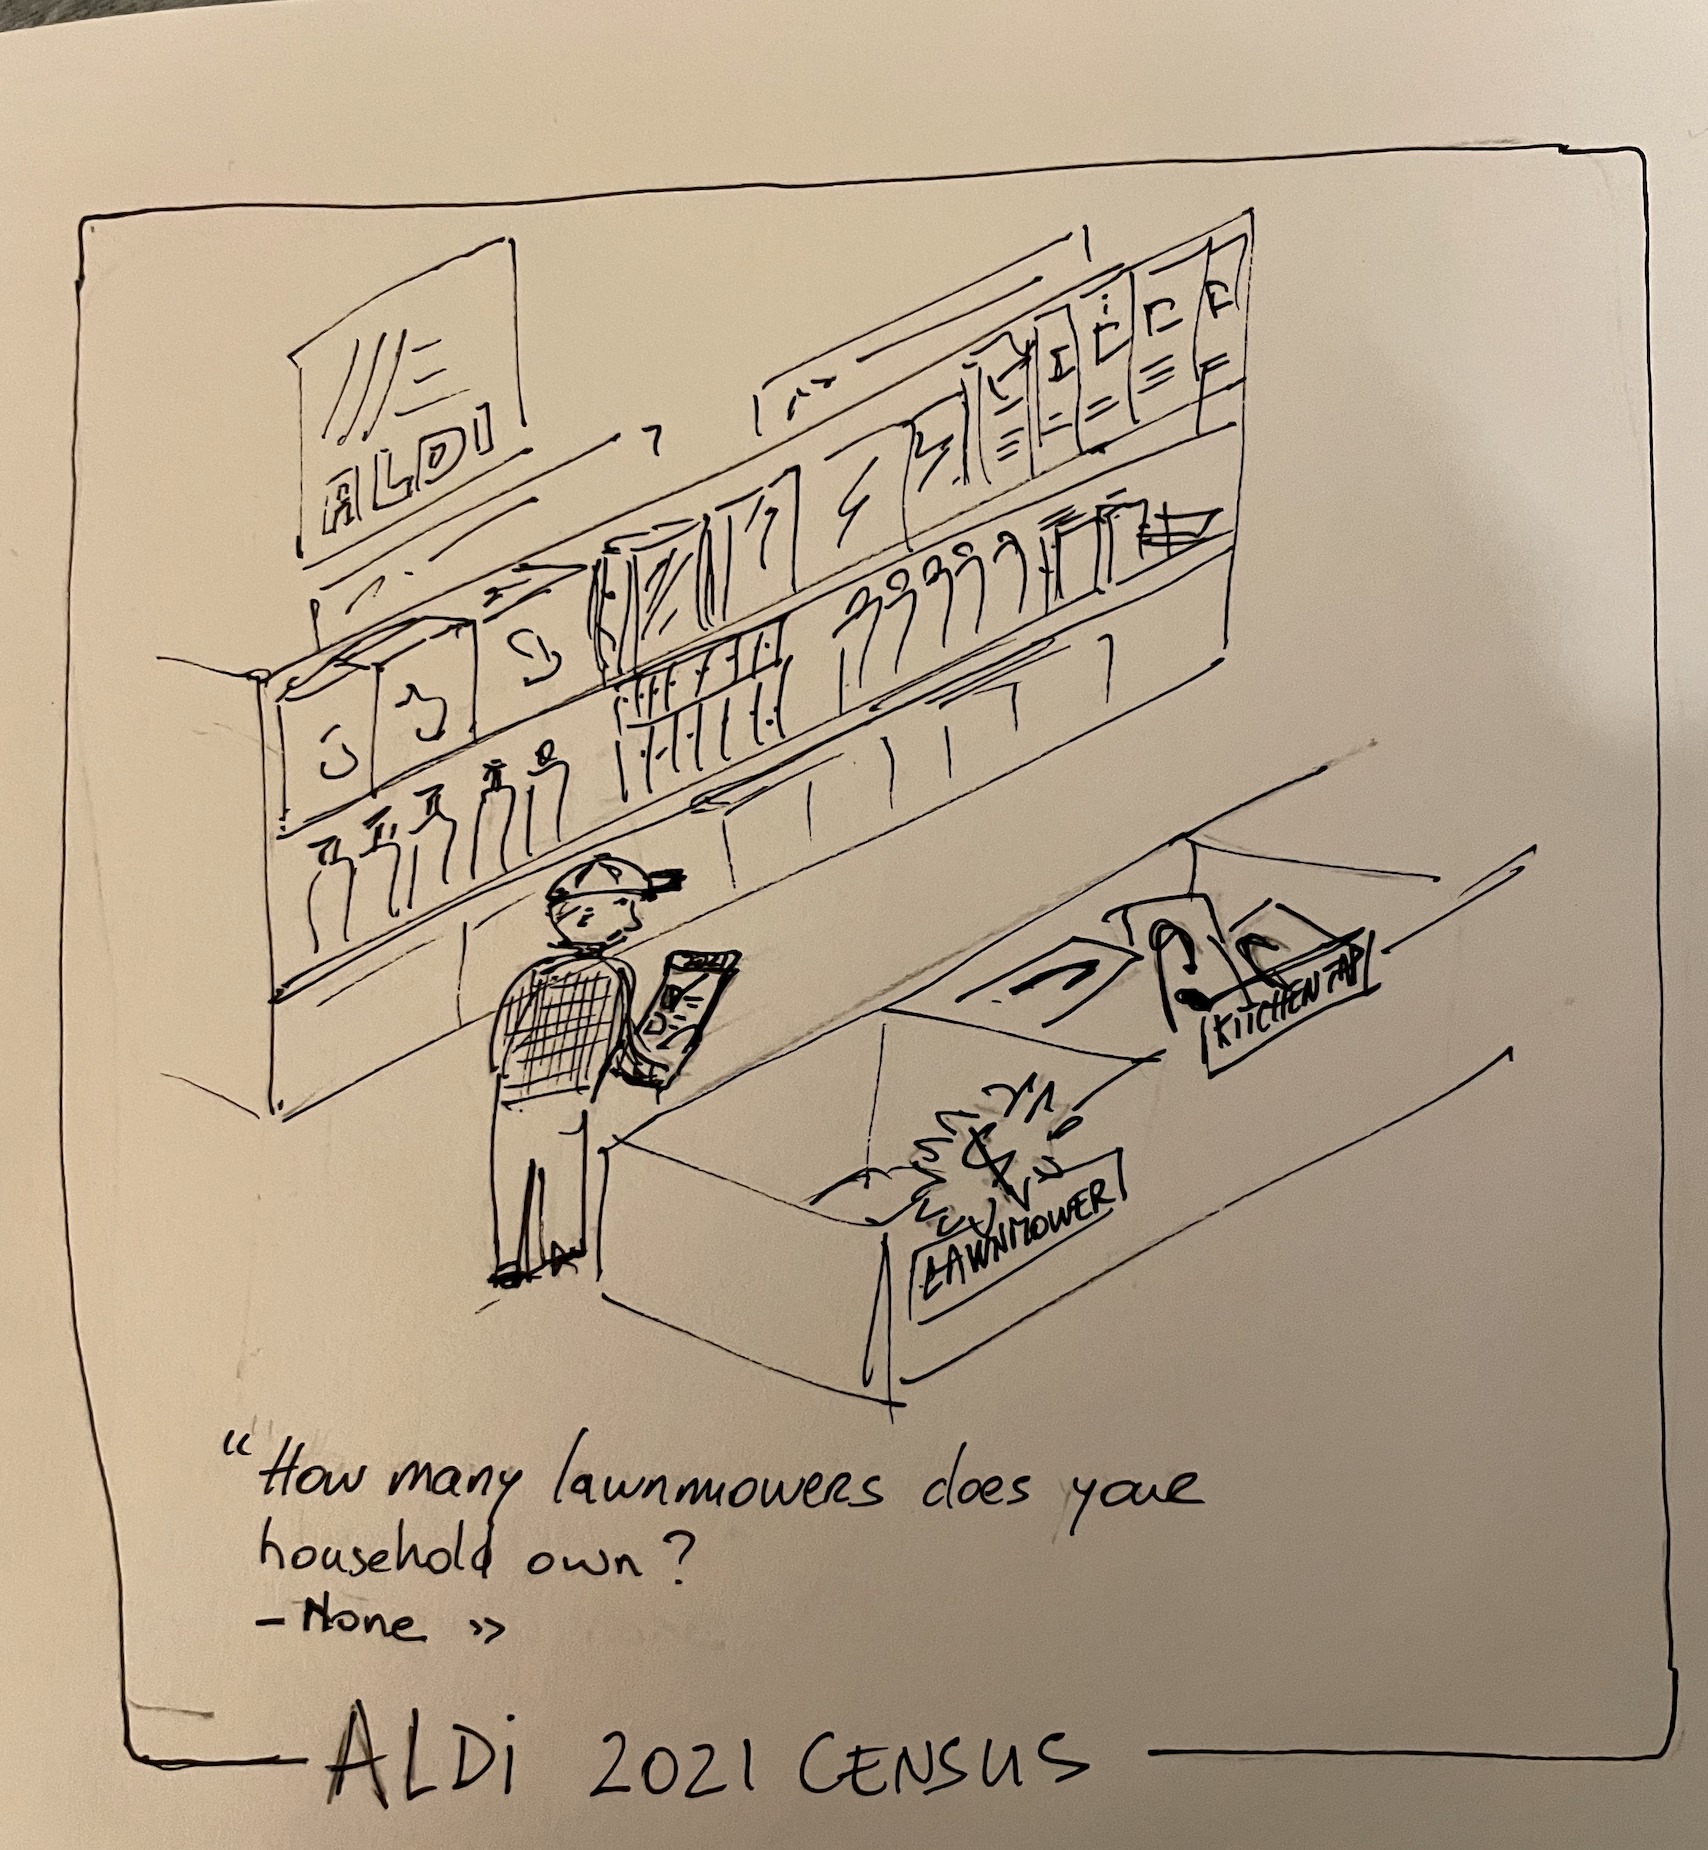 ALDI
2021
KITCHEN TAP
LAWNMOWER
“How many lawnmowers does your
household own?
- None »
ALDi 2021 CENSUS